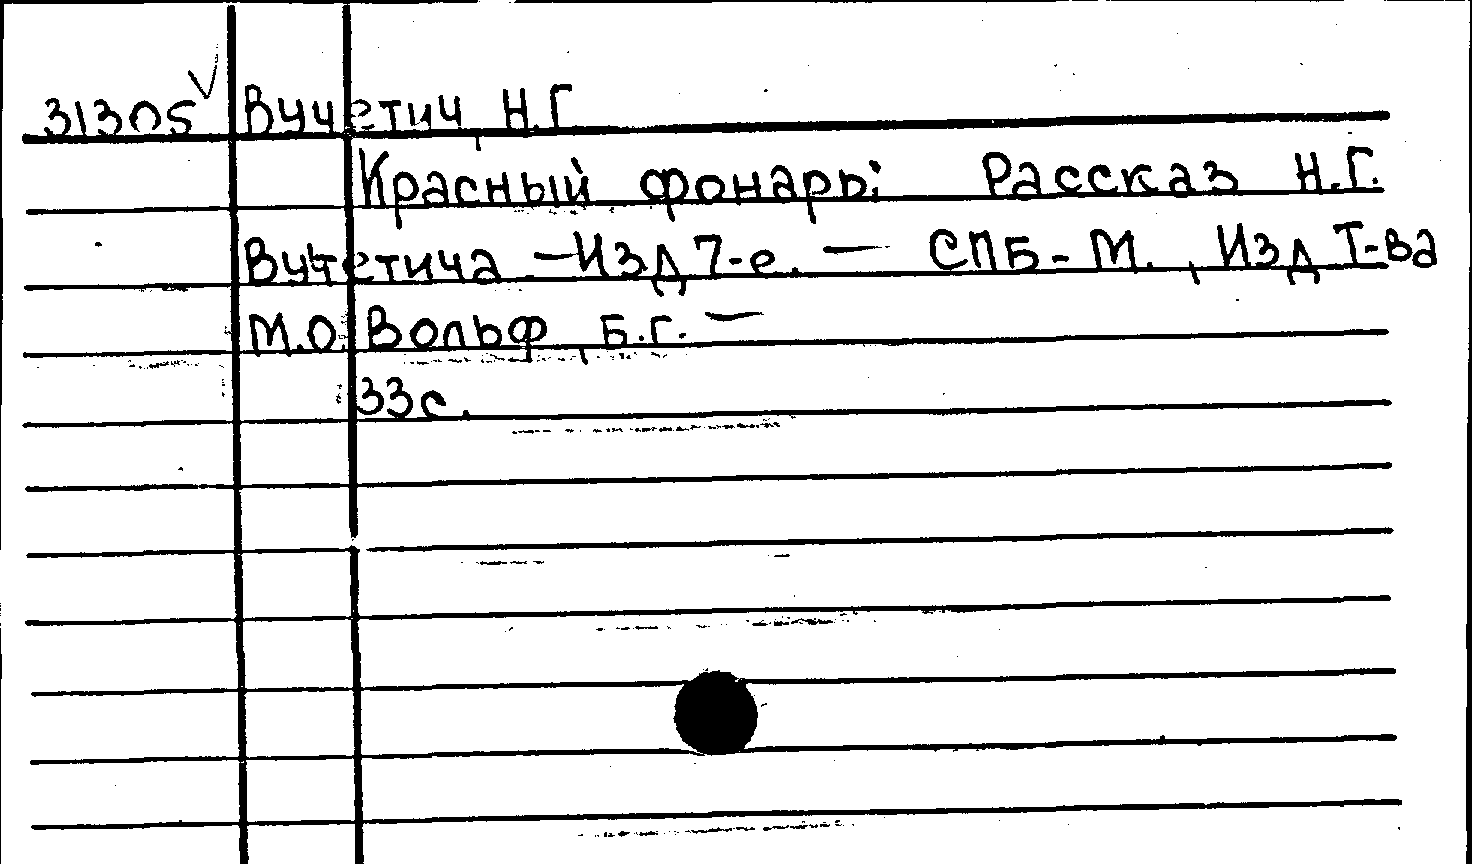 31305 Вучетич, Н.Г
Красный фонарь: Рассказ Н.Г.
Вучетича — Изд 7-е. — СПБ - М., Изд Т-ва
М.О. Вольф, Б.г. —
33с.